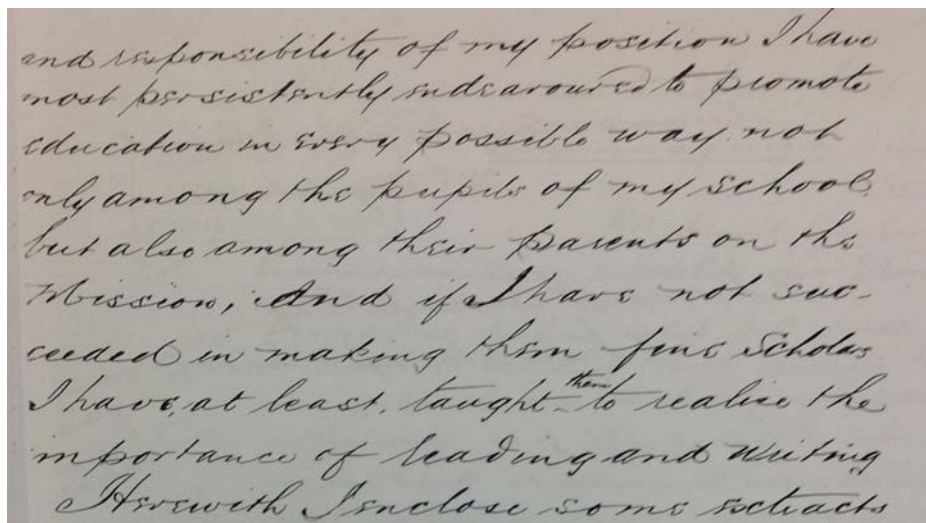 and responsibility of my position I have
most persistently endeavoured to promote
education in every possible way not
only among the pupils of my school,
but also among their parents on the
Mission; And if I have not suc-
ceeded in making them fine Scholars
I have, at least, taught them to realise the
importance of leading and writing
Herewith I enclose some extracts